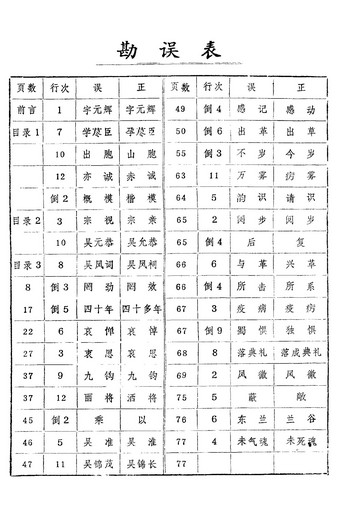 勘误表
页数 行次 误 正 页数 行次 误 正
前言 1 字元辉 宇元辉 49 倒4 感记 感动
目录1 7 学荩臣 孕荩臣 50 倒6 出草 出草
10 出胞 山胞 55 倒3 不岁 今岁
12 亦诚 赤诚 63 11 万雾 病雾
倒2 概模 楷模 64 5 韵识 请识
目录2 3 宗视 宗亲 65 2 闵步 闵岁
10 吴元恭 吴允恭 65 倒4 后 复
目录3 8 吴风词 吴凤柯 66 6 与革 兴革
8 倒3 罔劲 罔效 66 倒4 所击 所系
17 倒5 四十年 四十多年 67 3 疫病 疫病
22 6 哀悼 哀悼 67 倒9 獨惧 独惧
27 3 衷思 哀思 68 8 落典礼 落成典礼
37 9 九钩 九钧 69 2 风徽 风徽
37 12 丽将 洒将 75 5 蔽 敝
45 倒2 乘 以 76 6 东兰 兰谷
46 5 吴准 吴淮 77 4 未气魂 未死魂
47 11 吴锦茂 吴锦长 77